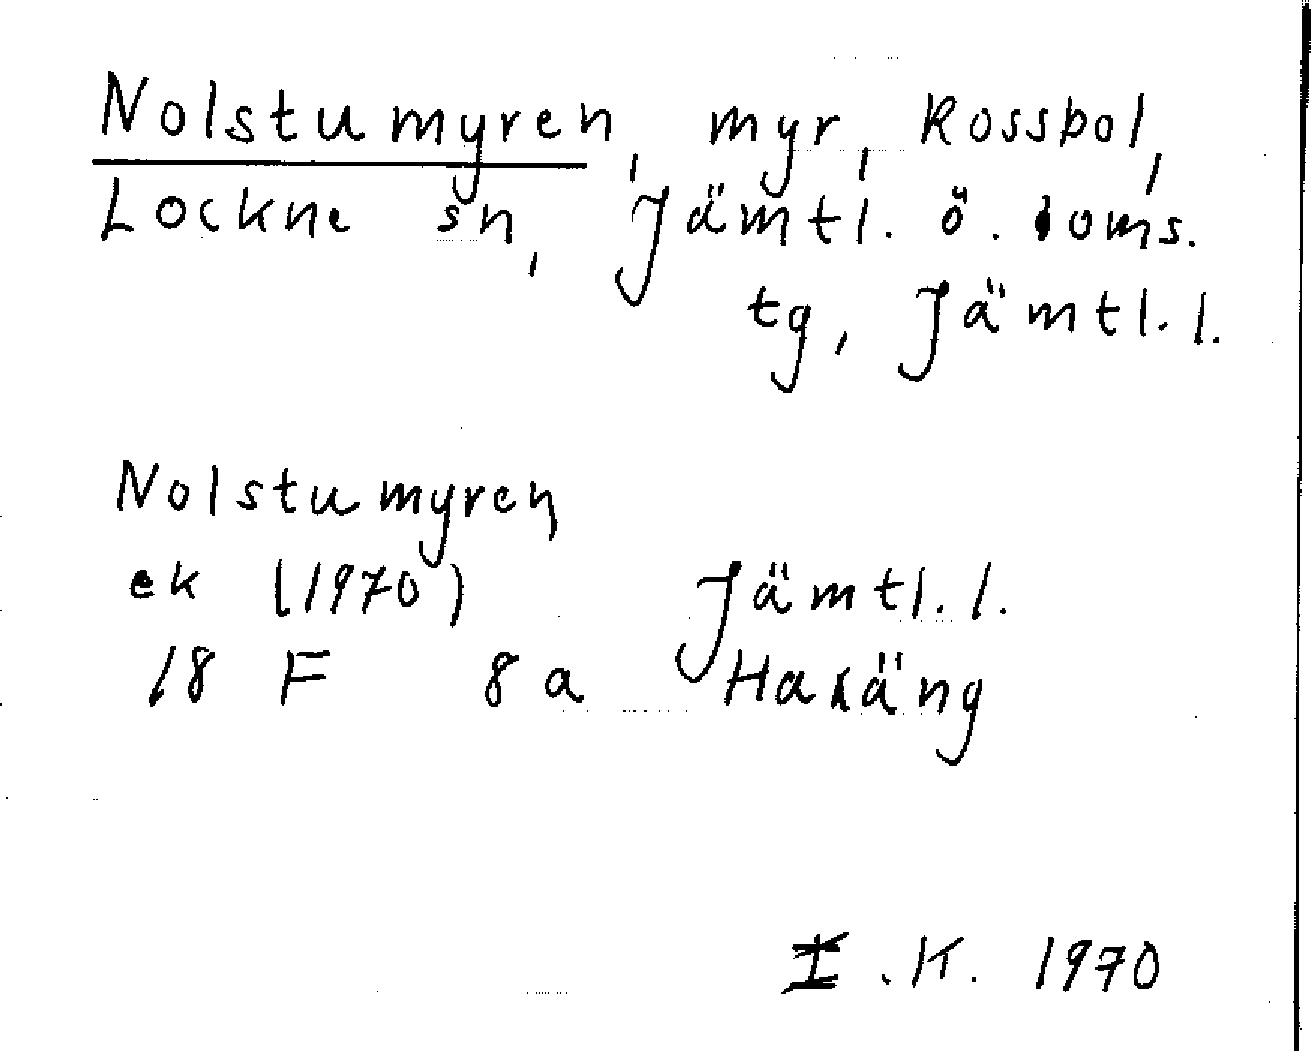 Nolstumyren, myr, Rossbol,
Lockne sn, Jämtl. ö. doms.
tg, Jämtl. l.
Nolstumyren
ek (1970) Jämtl. l.
18 F 8 a Haxäng
I. K. 1970